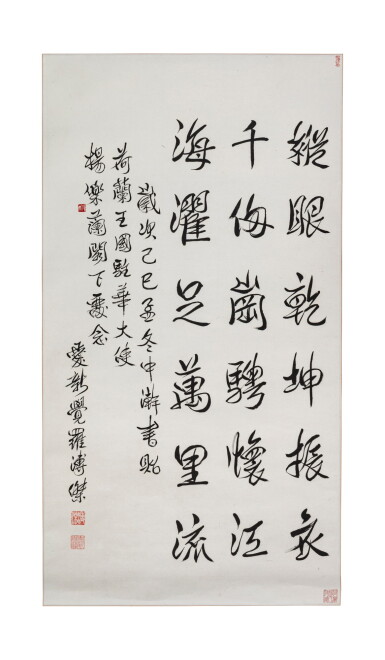 縱眼乾坤振衣
千仞崗騁懷江
海濯足萬里流
歲次己巳孟冬中澣書貽
荷蘭王國駐華大使
楊樂蘭閣下念
愛新覺羅溥傑